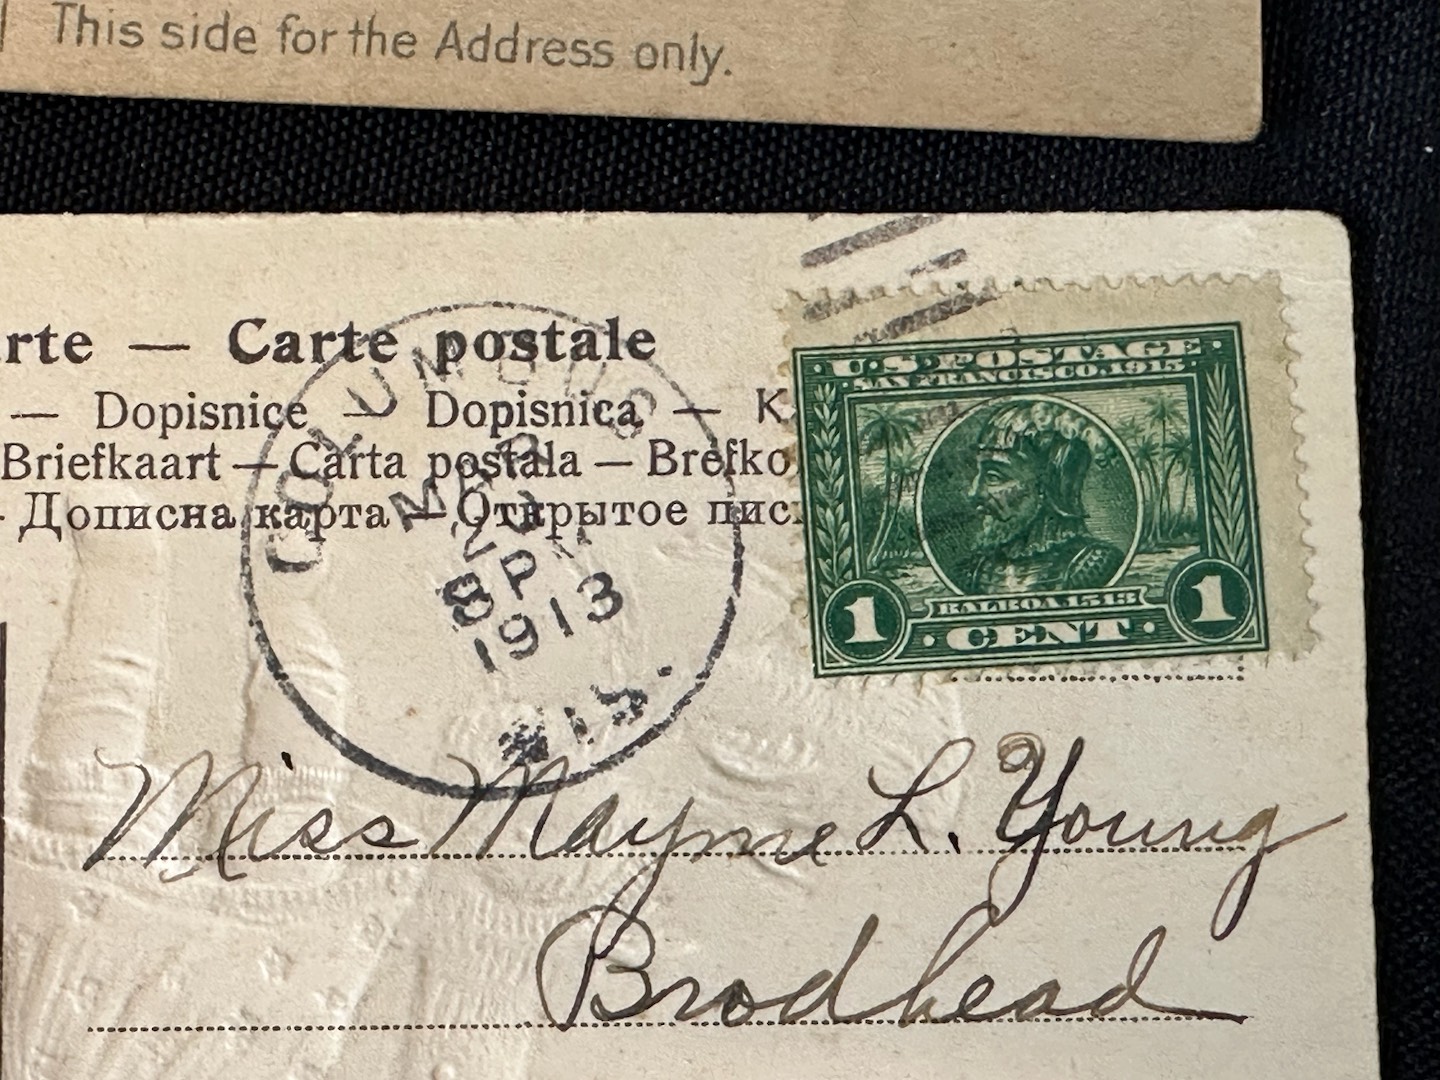 This side for the Address only.
rte — Carte postale
— Dopisnice — Dopisnica — K
Briefkaart — Carta postala — Brefko
- Дописна карта — Открытое пис
COLUMBUS
MAR
PM
1913
WIS.
U.S. POSTAGE
SAN FRANCISCO, 1915
BALBOA 1513
1 CENT 1
Miss Mayme L. Young
Brodhead